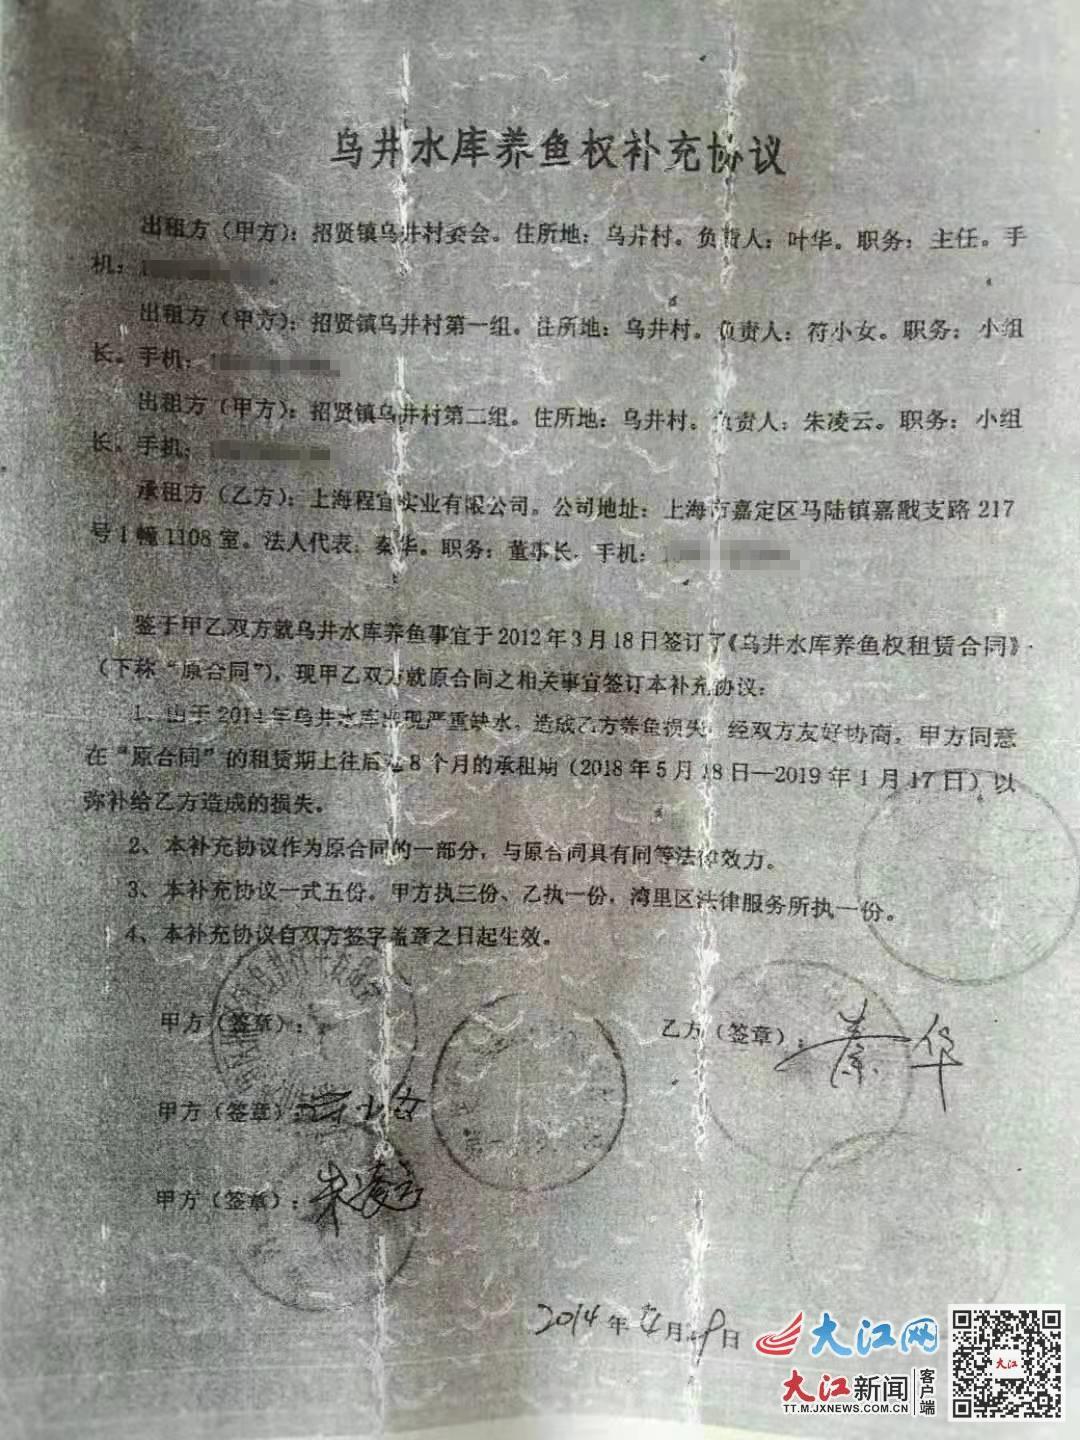 乌井水库养鱼权补充协议
出租方（甲方）：招贤镇乌井村委会。住所地：乌井村。负责人：叶华。职务：主任。手
机：
出租方（甲方）：招贤镇乌井村第一组。住所地：乌井村。负责人：符小女。职务：小组
长。手机：
出租方（甲方）：招贤镇乌井村第二组。住所地：乌井村。负责人：朱凌云。职务：小组
长。手机：
承租方（乙方）：上海程宜实业有限公司。公司地址：上海市嘉定区马陆镇嘉戬支路217
号1幢1108室。法人代表：秦华。职务：董事长。手机：
鉴于甲乙双方就乌井水库养鱼事宜于2012年3月18日签订了《乌井水库养鱼权租赁合同》
（下称“原合同”），现甲乙双方就原合同之相关事宜签订本补充协议：
1、由于2014年乌井水库出现严重缺水，造成乙方养鱼损失，经双方友好协商，甲方同意
在“原合同”的租赁期上往后延8个月的承租期（2018年5月18日—2019年1月17日）以
弥补给乙方造成的损失。
2、本补充协议作为原合同的一部分，与原合同具有同等法律效力。
3、本补充协议一式五份，甲方执三份、乙执一份，湾里区法律服务所执一份。
4、本补充协议自双方签字盖章之日起生效。
甲方（签章）：
乙方（签章）：秦华
甲方（签章）：
甲方（签章）：朱凌云
2014年 月 日
大江网
大江新闻 客户端
TT.M.JXNEWS.COM.CN
大江